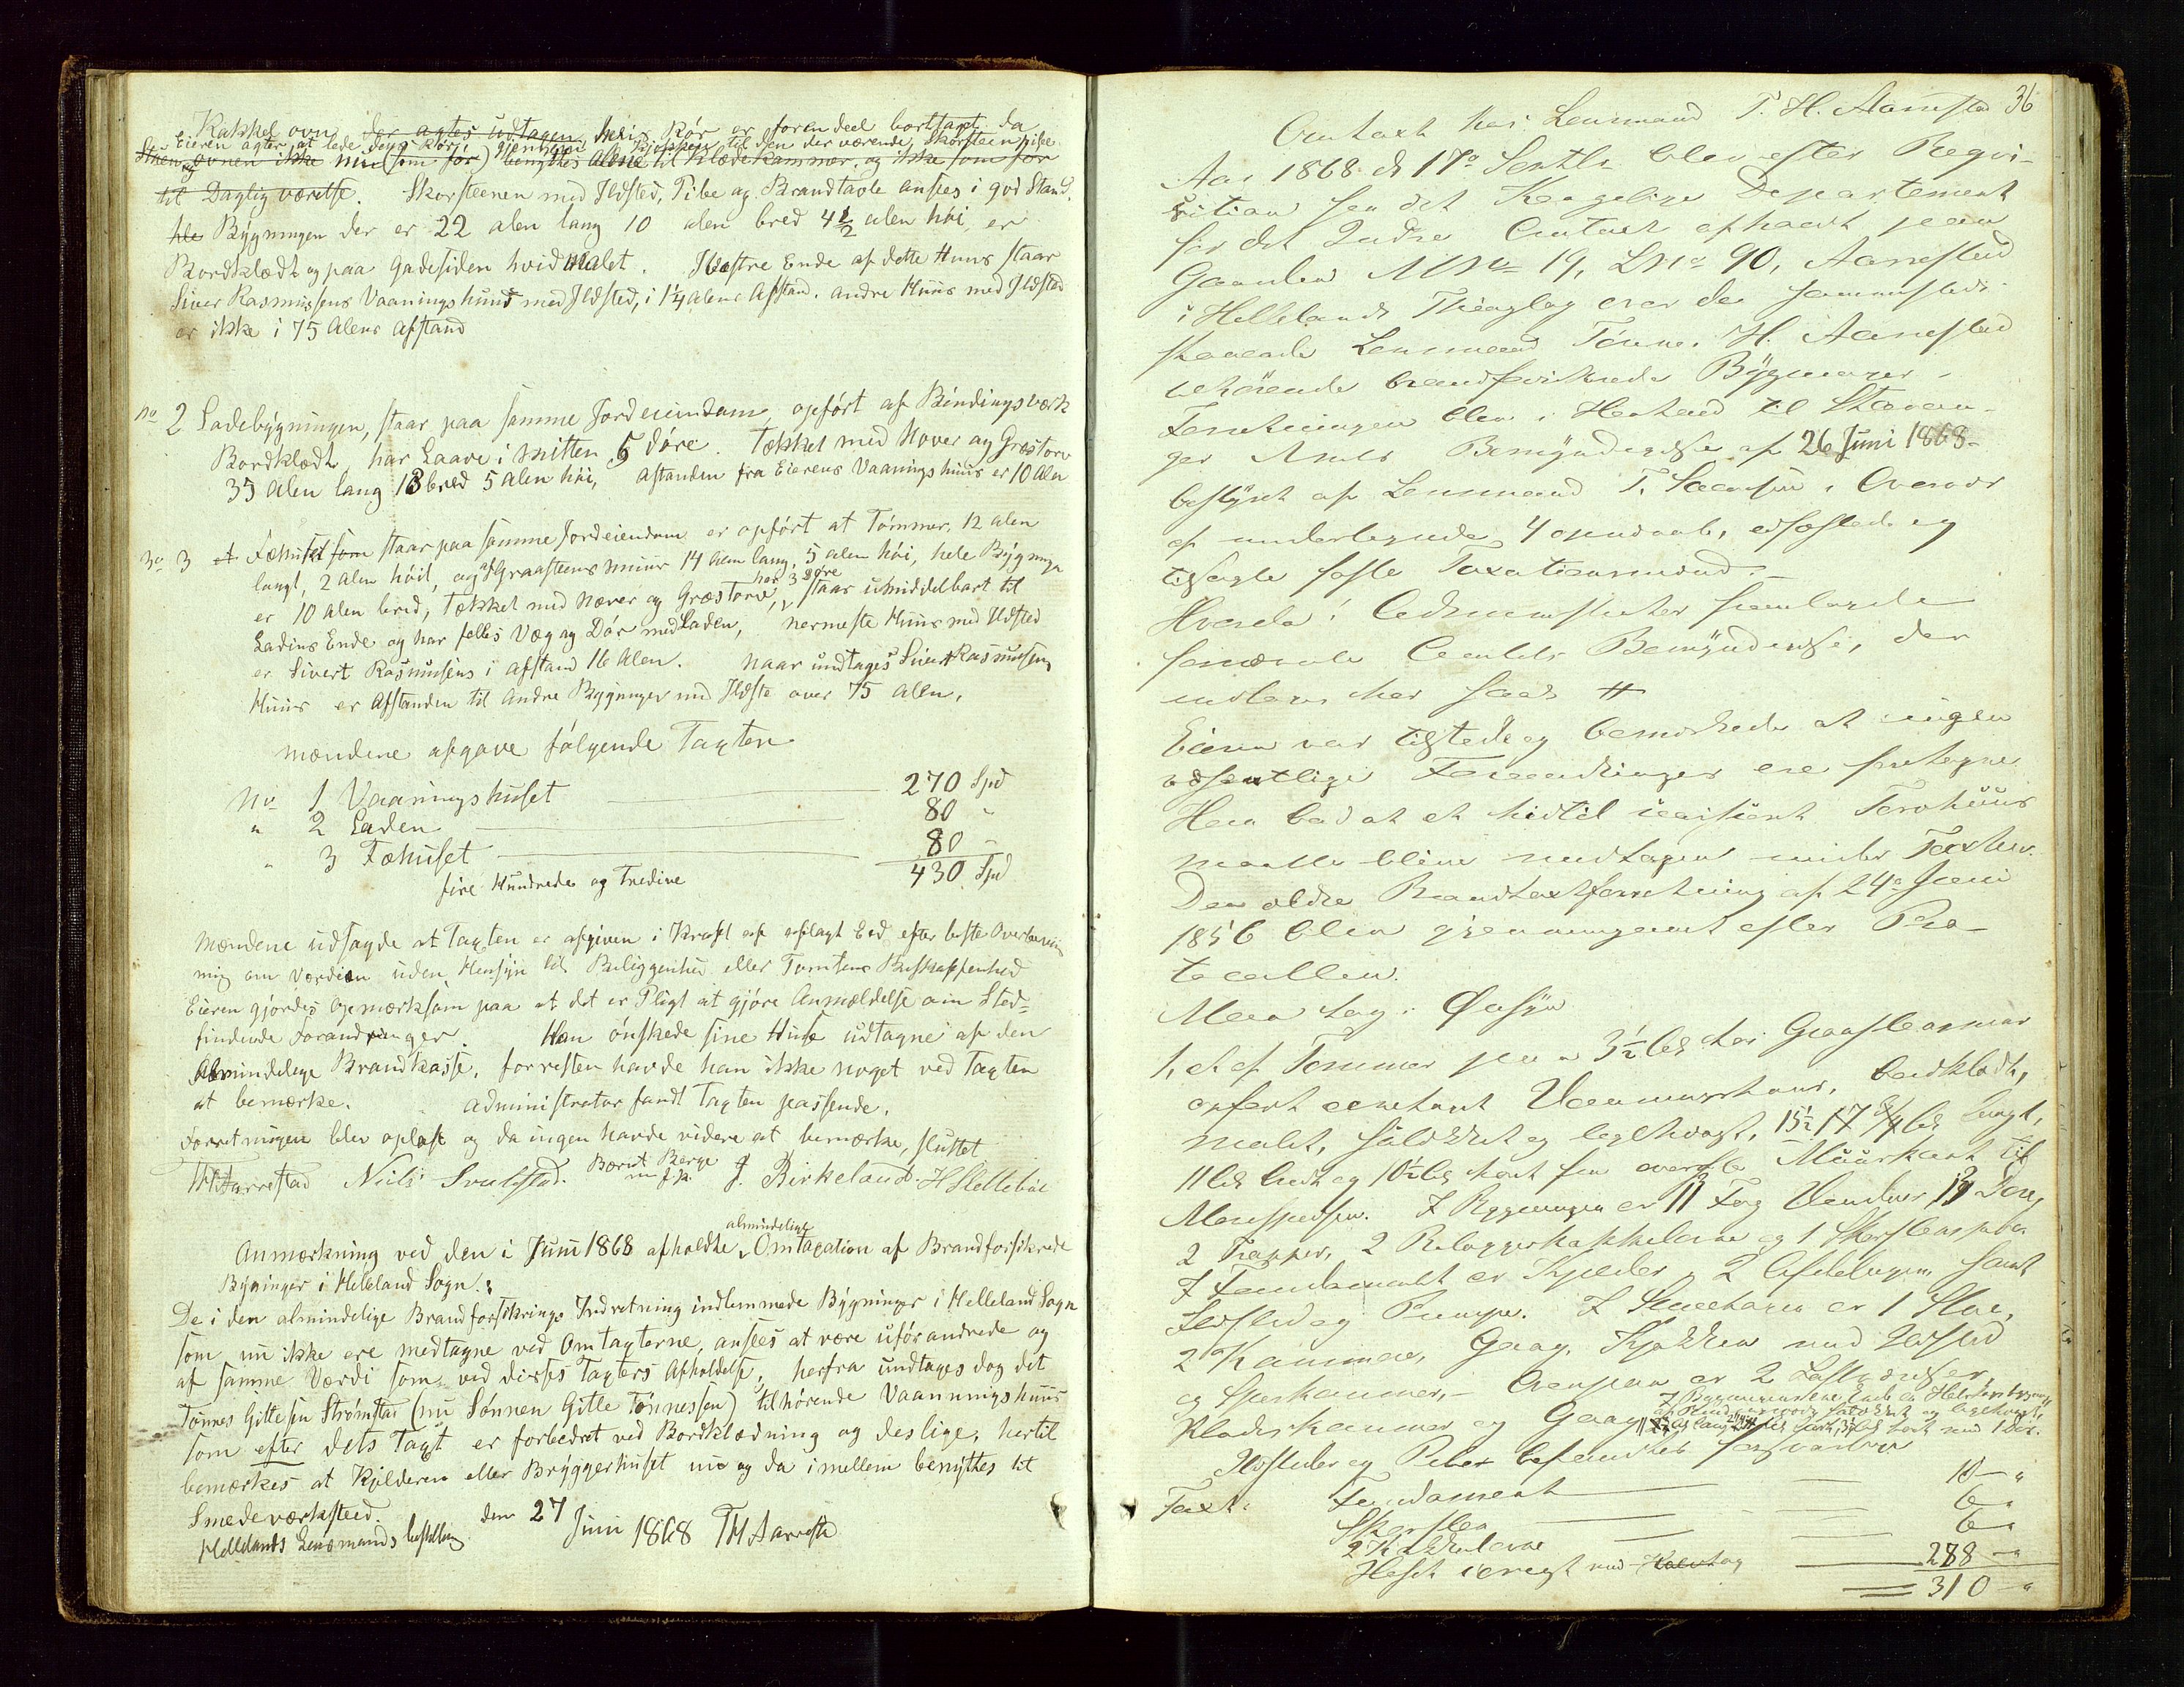 Kakkelovn der agtes udtagen, hvis Rör er forendeel borttagt, da
Eieren agter at lede dens Rör gjennem Kjökken til den der værende Skorsteenspibe
og ovnen ikke nu (som för) benyttes alene til Klædekammer, og ikke som för
til Dagligværelse. Skorsteenen med Ildsted, Pibe og Brandtavle ansees i god Stand.
hele Bygningen der er 22 alen lang 10 alen bred 4½ alen höi, er
Bordklædt og paa Gadesiden hvidmalet. Vestre Ende af dette Huus staar
Siver Rasmussens Vaaningshuus med Ildsted, i 1¼ Alens Afstand. andre Huus med Ildsted
er ikke i 75 Alens afstand
No 2 Ladebygningen, staar paa samme Jordeiendom, opfört af Bindingsværk
Bordklædt, har Laave i Mitten 5 döre. Tækket med Næver og Græstorv
35 alen lang 13 bred 5 alen höi, Afstanden fra Eierens Vaaningshuus er 10 Alen
No 3 Fæhuset som staar paa samme Jordeiendom er opfört at Tömmer, 12 alen
langt, 2 alen höit, og af Graasteens muur 14 Alen lang, 5 alen höi, hele Bygningen
er 10 alen bred, Tækket med Næver og Græstorv, har 3 Döre staar umiddelbart til
Ladens Ende og har felles Væg og Dör med Laden, nermeste Huus med Ildsted
er Sivert Rasmussens i afstand 16 Alen. Naar undtages Sivert Rasmussens
Huus er Afstanden til andre Bygninger med Ildste over 75 Alen.
Mændene afgave fölgende Taxten
No 1 Vaaningshuset 270 Spd
" 2 Laden 80 "
" 3 Fæhuset 80 "
fire Hundrede og Tredive 430 Spd
Mændene udsagde at Taxten er afgiven i Kraft af aflagt Eed efter beste Overbeviis
ning om Værdien uden Hensyn til Beliggenhed eller Tomtens Beskaffenhed
Eieren gjordes opmærksom paa at det er Pligt at gjöre Anmældelse om Sted=
findende Forandringer. Han önskede sine Huse udtagne af den
Almindelige Brandkasse, forresten havde han ikke noget ved Taxten
at bemærke. Administrator fandt Taxten passende.
Forretningen blev oplæst og da ingen havde videre at bemærke, sluttet
TH Aarrestad Niels Svalestad. Børnt Berge J. Birkeland. H Slettebøe
m f P.
Anmærkning ved den i Juni 1868 afholdte almindelige Omtaxation af Brandforsikrede
Bygninger i Helleland Sogn:
De i den almindelige Brandforsikrings Indretning indlemmede Bygninger i Helleland Sogn
som nu ikke ere medtagne ved Omtaxterne, ansees at være uforandrede og
af samme Værdi som ved disses Taxters Afholdelse, herfra undtages dog det
Tönnes Gitlesen Strömstad (nu Sönnen Gitle Tönnessen) tilhörende Vaaningshuus
som efter dets Taxt er forbedret ved Bordklædning og deslige; hertil
bemærkes at Kjelderen eller Bryggerhuset nu og da imellem benyttes til
Smedeværksted.
Hellelands Lensmands bestilling den 27 Juni 1868 TH Aarresta
36
Omtaxt hos Lensmand T. H. Aarrestad
Aar 1868 d 17de Septbr blev efter Reqvi-
sition fra det Kongelige Departement
for det Indre Omtaxt afholdt paa
Gaarden MNo 19, LNo 90, Aarrestad
i Hellelands Thinglag over de sammesteds
staaende Lensmand Tönnes H. Aarrestad
tilhörende brandforsikrede Bygninger.
Forretningen blev i Henhold til Stavan-
ger Amts Bemyndigelse af 26 Juni 1868
bestyret af Lensmand T. af Overvær
af underlegnede 4 opnævnte, edfæstede og
tilsagte faste Taxationsmænd.
Hvorda: Administrator fremlagde
fornævnte Bemyndigelse, der
indtages her saal. #
Eieren var tilstede og bemærkede at ingen
væsentlige Forandringer ere foretagne
Han bad at et hidtil uassureret Torvhuus
maatte blive medtagen under Taxten.
Den ældre Brandtaxtforretning af 24de Juni
1856 blev gjennemgaaet efter Pro-
tocollen.
Man tog i Øiesyn
1, et af Tømmer paa en 3½ Al. høi Graasteensmuur
opfört Vaaningshuus, bordklædt,
malet, og teglhængt, 15½ Al. langt,
11 Al. bredt og 10½ Al. höit fra överste Muurkant til
Mønsspidsen. I Bygningen er 11 Fag Vinduer 19 Döre,
2 Trapper, 2 Kakkelovne og 1 Skorsteenspibe
I Fundamentet er Kjelder i 2 Afdelinger samt
Ildsted og Pumpe. I Stueetagen er 1 Stue,
2 Kammere, Gang, Kjøkken med Ildsted
og Spiskammer,- Ovenpaa er 2 Loftværelser,
Klædeskammer og Gang
Ildsteder og Piber befandtes forsvarlige
Taxt: Fundament 10 - "
Skorsteen 6 "
2 Kakkelovne 6 "
Huset iövrigt med 288 - "
310 - "